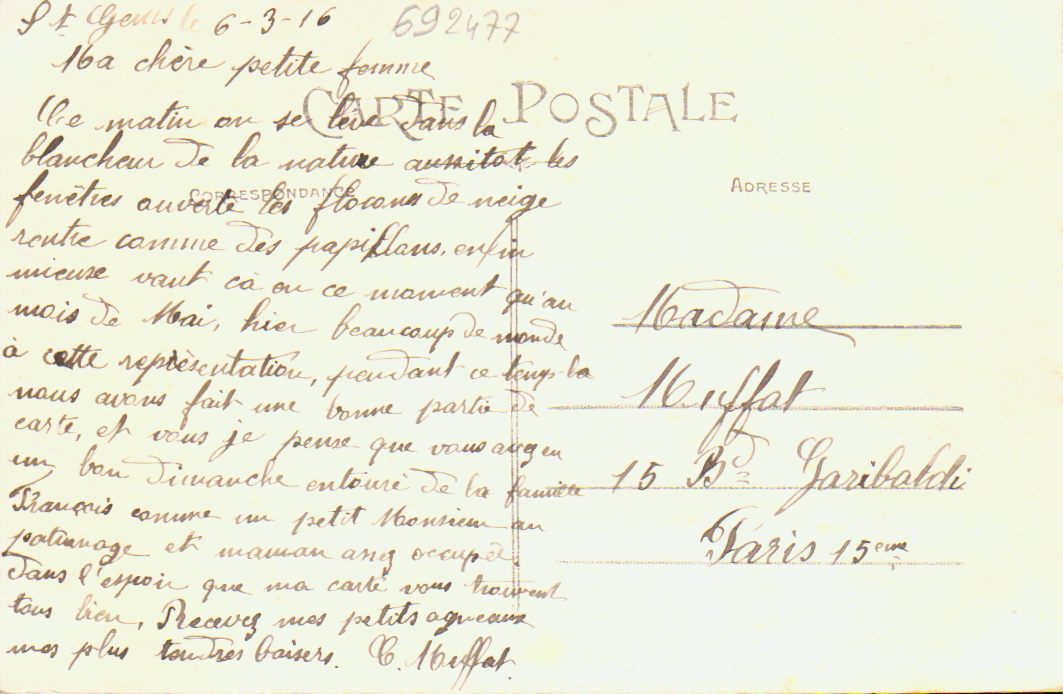 St Genis le 6-3-16
692477
Ma chère petite femme
CARTE POSTALE
Ce matin on se lève dans la
blancheur de la nature aussitot les
fenêtres ouverte les flocons de neige
rentre comme des papillons, enfin
mieuxe vaut ca en ce moment qu'au
mois de Mai, hier beaucoup de monde
à cette représentation, pendant ce temps la
nous avons fait une bonne partie de
carte, et vous je pense que vous avez eu
un bon dimanche entouré de la famille
François comme un petit Monsieur au
patronage et maman assez occupée
dans l'espoir que ma carte vous trouvent
tous bien, Recevez mes petits agneaux
mes plus tendres baisers. C. Muffat.
CORRESPONDANCE
ADRESSE
Madame
Muffat
15 Bd Garibaldi
Paris 15eme